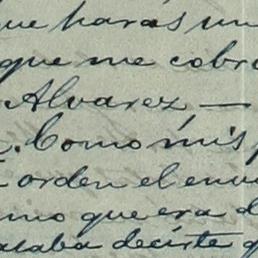 que harás un
que me cobr
Alvarez —
. Como mis
orden el env
mo que era d
ataba decirte q